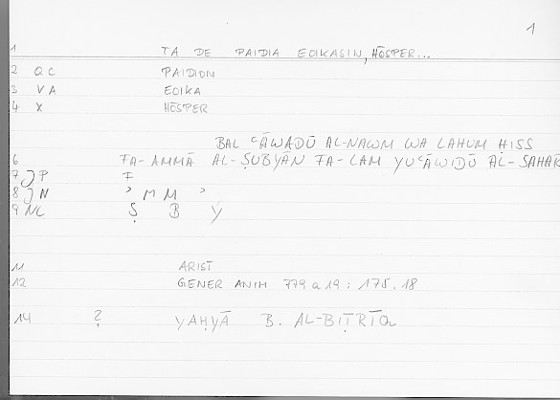 1
1 TA DE PAIDIA EOIKASIN, HŌSPER...
2 QC PAIDION
3 VA EOIKA
4 X HŌSPER
BAL ʿĀWADŪ AL-NAWM WA LAHUM ḤISS
6 FA-AMMĀ AL-ṢUBYĀN FA-LAM YUʿĀWIDŪ AL-SAHAR
7 JP F
8 JN ʾ M M ʾ
9 NL Ṣ B Y
11 ARIST
12 GENER ANIM 779 a 19 : 175.18
14 ? YAḤYĀ B. AL-BIṬRĪQ